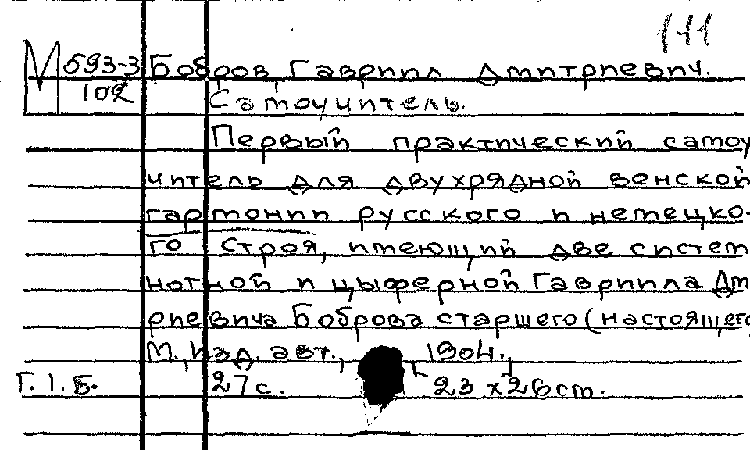 111
М 593-3 Бобров, Гавриил Дмитриевич.
102 Самоучитель.
Первый практический самоу
читель для двухрядной венской
гармонии русского и немецко-
го строя, имеющий две систем
нотной и цыферной Гавриила Дм
риевича Боброва старшего (настоящего
М., изд. авт., 1904.
Г.I.Б. 27 с. 23 х 26 cm.